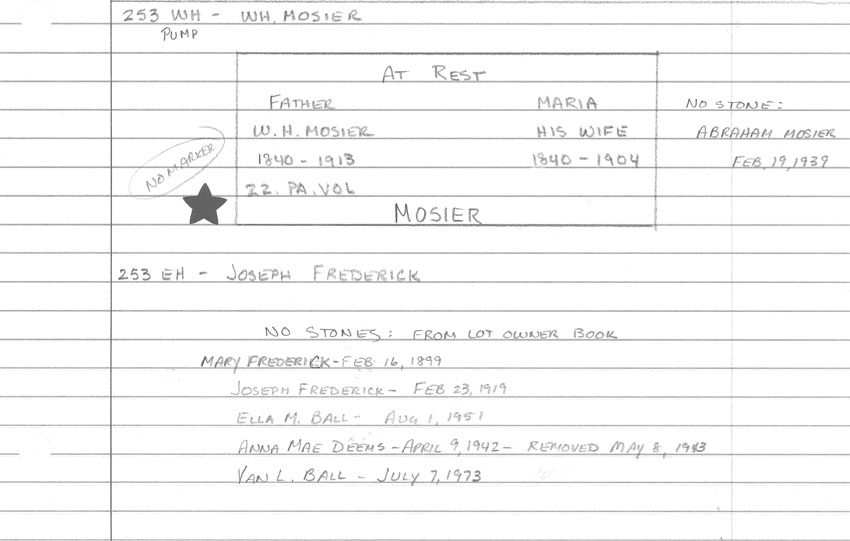 253 WH - WH. MOSIER
PUMP
AT REST
FATHER MARIA NO STONE:
W. H. MOSIER HIS WIFE ABRAHAM MOSIER
1840 - 1913 1840 - 1904 FEB. 19, 1939
NO MARKER
22. PA. VOL
MOSIER
253 EH - JOSEPH FREDERICK
NO STONES: FROM LOT OWNER BOOK
MARY FREDERICK - FEB 16, 1899
JOSEPH FREDERICK - FEB 23, 1919
ELLA M. BALL - AUG 1, 1951
ANNA MAE DEEMS - APRIL 9, 1942 - REMOVED MAY 8, 1943
VAN L. BALL - JULY 7, 1973